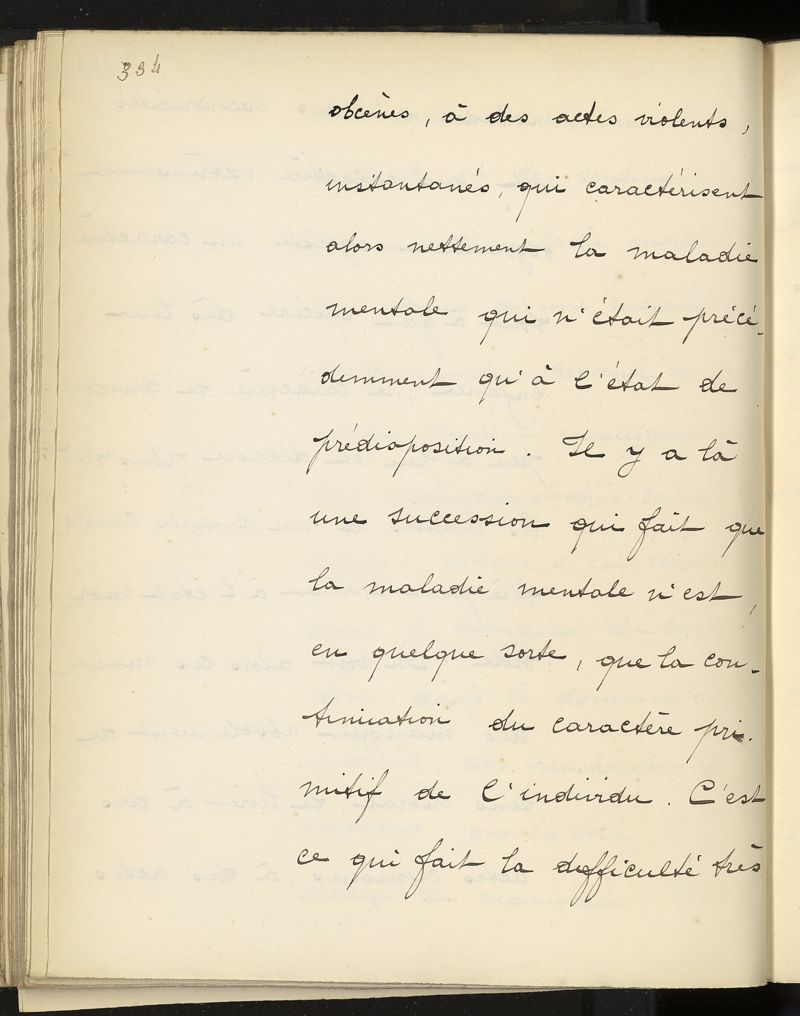 334
obcènes, à des actes violents,
instantanés, qui caractérisent
alors nettement la maladie
mentale qui n'était précé-
demment qu'à l'état de
prédisposition. Il y a là
une succession qui fait que
la maladie mentale n'est,
en quelque sorte, que la con-
tinuation du caractère pri-
mitif de l'individu. C'est
ce qui fait la difficulté très